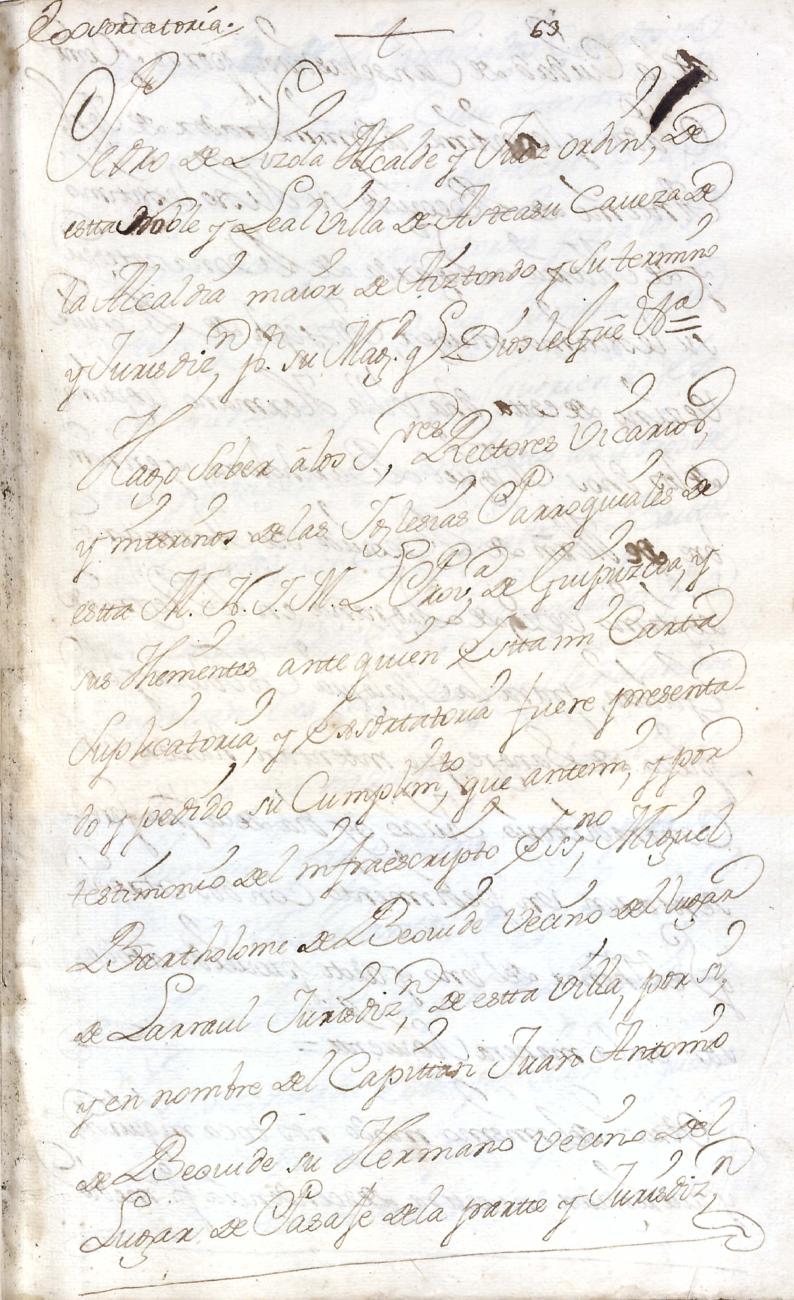 Exsortatoria.
63
Pedro de Lizola Alcalde y Juez ordin, De
estta Noble y Leal Villa de Asteasu Caveza de
la Alcaldia maior de Aiztondo y su termino
y Jurisdizn, pr. su Magd. q Dios le gue Va
Hago saber â los Sres, Rectores Vicarios,
y interinos delas Yglesias Parroquiales de
estta M. N. Y. M. L. Prova, de Guipuzcoa, y
sus thenientes ante quien estta mi Cartta
Suplicatoria, y Exsortatoria fuere presenta-
do y pedido su Cumplimto, que antemi, y por
testimonio del infraescripto Essno, Miguel
Bartholome de Beovide Vecino del lugar
de Larraul Jurisdizn, de estta Villa, por si,
y en nombre del Capittan Juan Antonio
de Beovide su Hermano vecino del
Lugar de Pasaje dela partte y Jurisdizn,